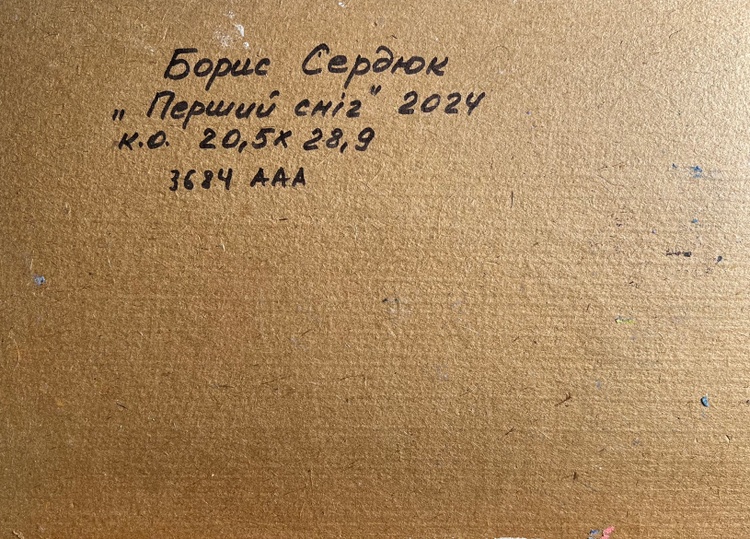 Борис Сердюк
„Перший сніг" 2024
к.о. 20,5х 28,9
3684 ААА